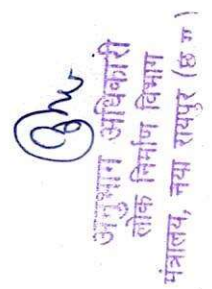 अनुभाग अधिकारी
लोक निर्माण विभाग
मंत्रालय, नया रायपुर (छ ग)